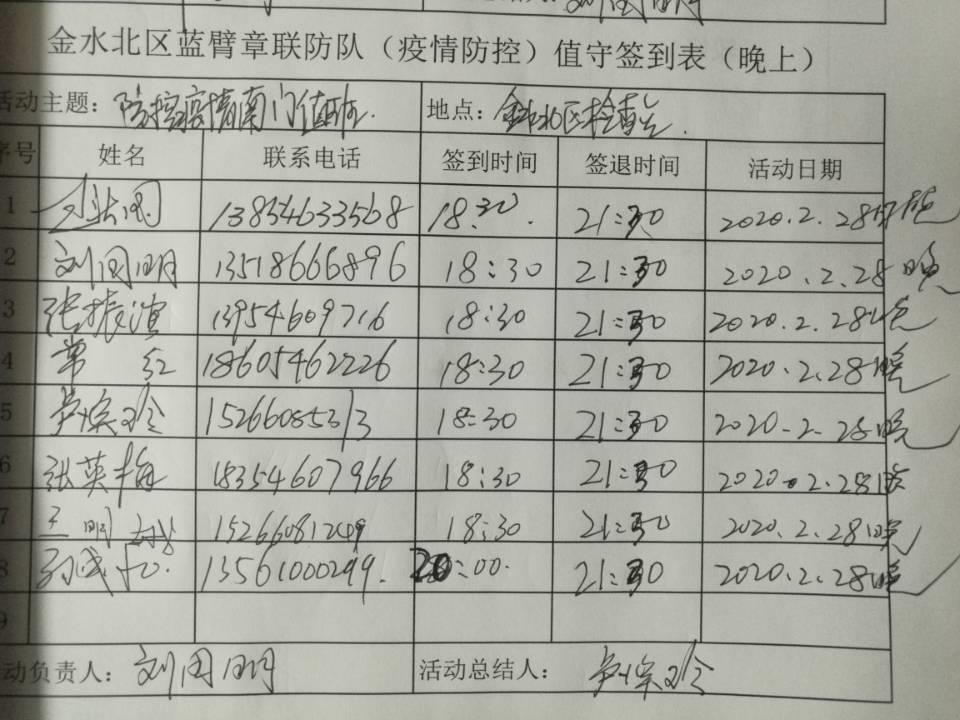 金水北区蓝臂章联防队（疫情防控）值守签到表（晚上）
活动主题：防控疫情南门值班. 地点：金水北区检查站.
序号 姓名 联系电话 签到时间 签退时间 活动日期
1 13854633568 18:30. 21:30 2020.2.28晚
2 刘国明 13518666896 18:30 21:30 2020.2.28晚
3 张振滨 13954609716 18:30 21:30 2020.2.28晚
4 常红 18605462226 18:30 21:30 2020.2.28晚
5 15266085313 18:30 21:30 2020.2.28晚
6 张英梅 18354607966 18:30 21:30 2020.2.28晚
7 王明 15266081249 18:30 21:30 2020.2.28晚
8 13561000299. 20:00. 21:30 2020.2.28晚
9
活动负责人：刘国明 活动总结人：